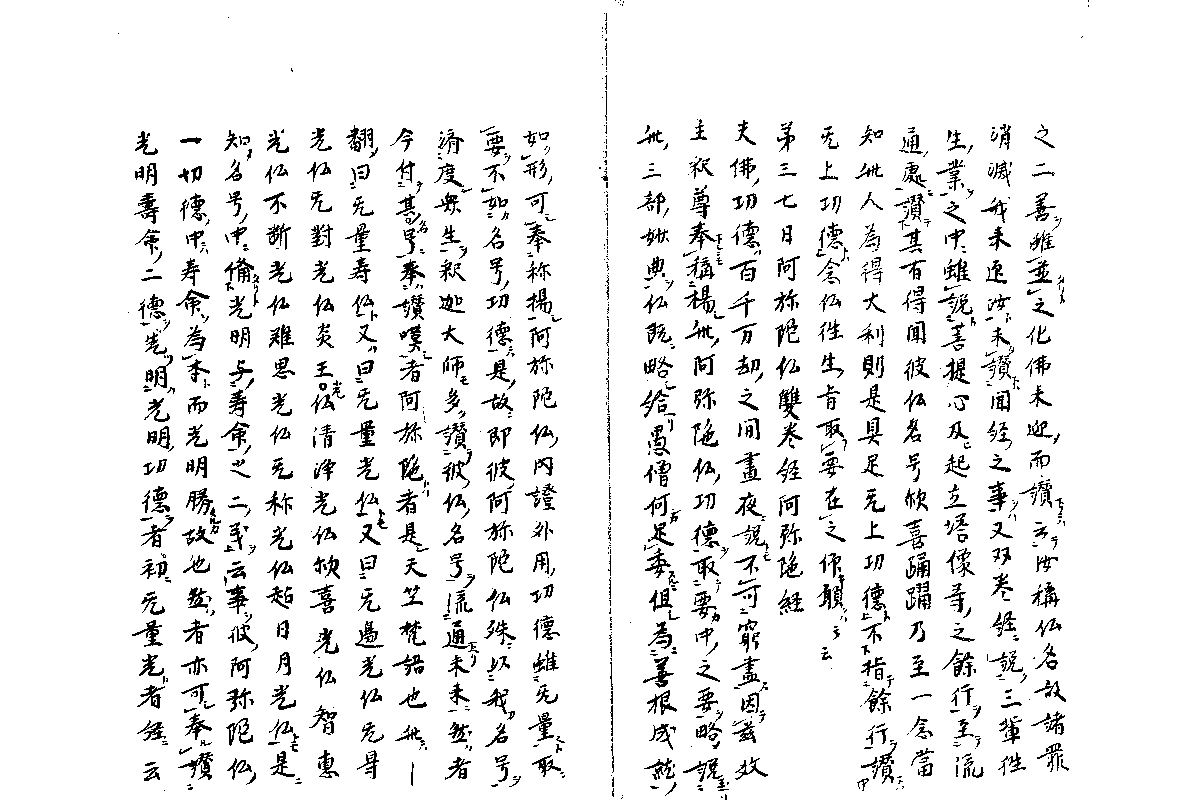 之二善雖並之化佛来迎而讃云汝稱仏名故諸罪
消滅我来迎汝未讃聞経之事又双巻経説三輩往
生業之中雖説菩提心及起立塔像等之餘行至流
通處讃其有得聞彼仏名号欣喜踊躍乃至一念當
知此人為得大利則是具足无上功徳不指餘行讃
无上功徳念仏往生肯取要在之作願云云
第三七日阿弥陀仏雙巻経阿弥陀経
夫佛功徳百千万劫之間晝夜説不可窮盡因茲效
主釈尊奉稱揚此阿弥陀仏功徳取要中之要略説
此三部妙典仏既略給愚僧何足委但為善根成就
如形可奉称揚阿弥陀仏内證外用功徳雖无量取
要不如名号功徳是故即彼阿弥陀仏殊以我名号
済度衆生釈迦大師多讃彼仏名号流通未来然者
今付其名号奉讃嘆者阿弥陀者是天竺梵語也此
翻曰无量寿仏又曰无量光仏又曰无邊光仏无㝵
光仏无對光仏炎王光仏清浄光仏欣喜光仏智惠
光仏不断光仏難思光仏无称光仏超日月光仏是
知名号中備光明与寿命之二義云事彼阿弥陀仏
一切徳中寿命為本而光明勝故也然者亦可奉讃
光明壽命二徳先明光明功徳者初无量光者経云